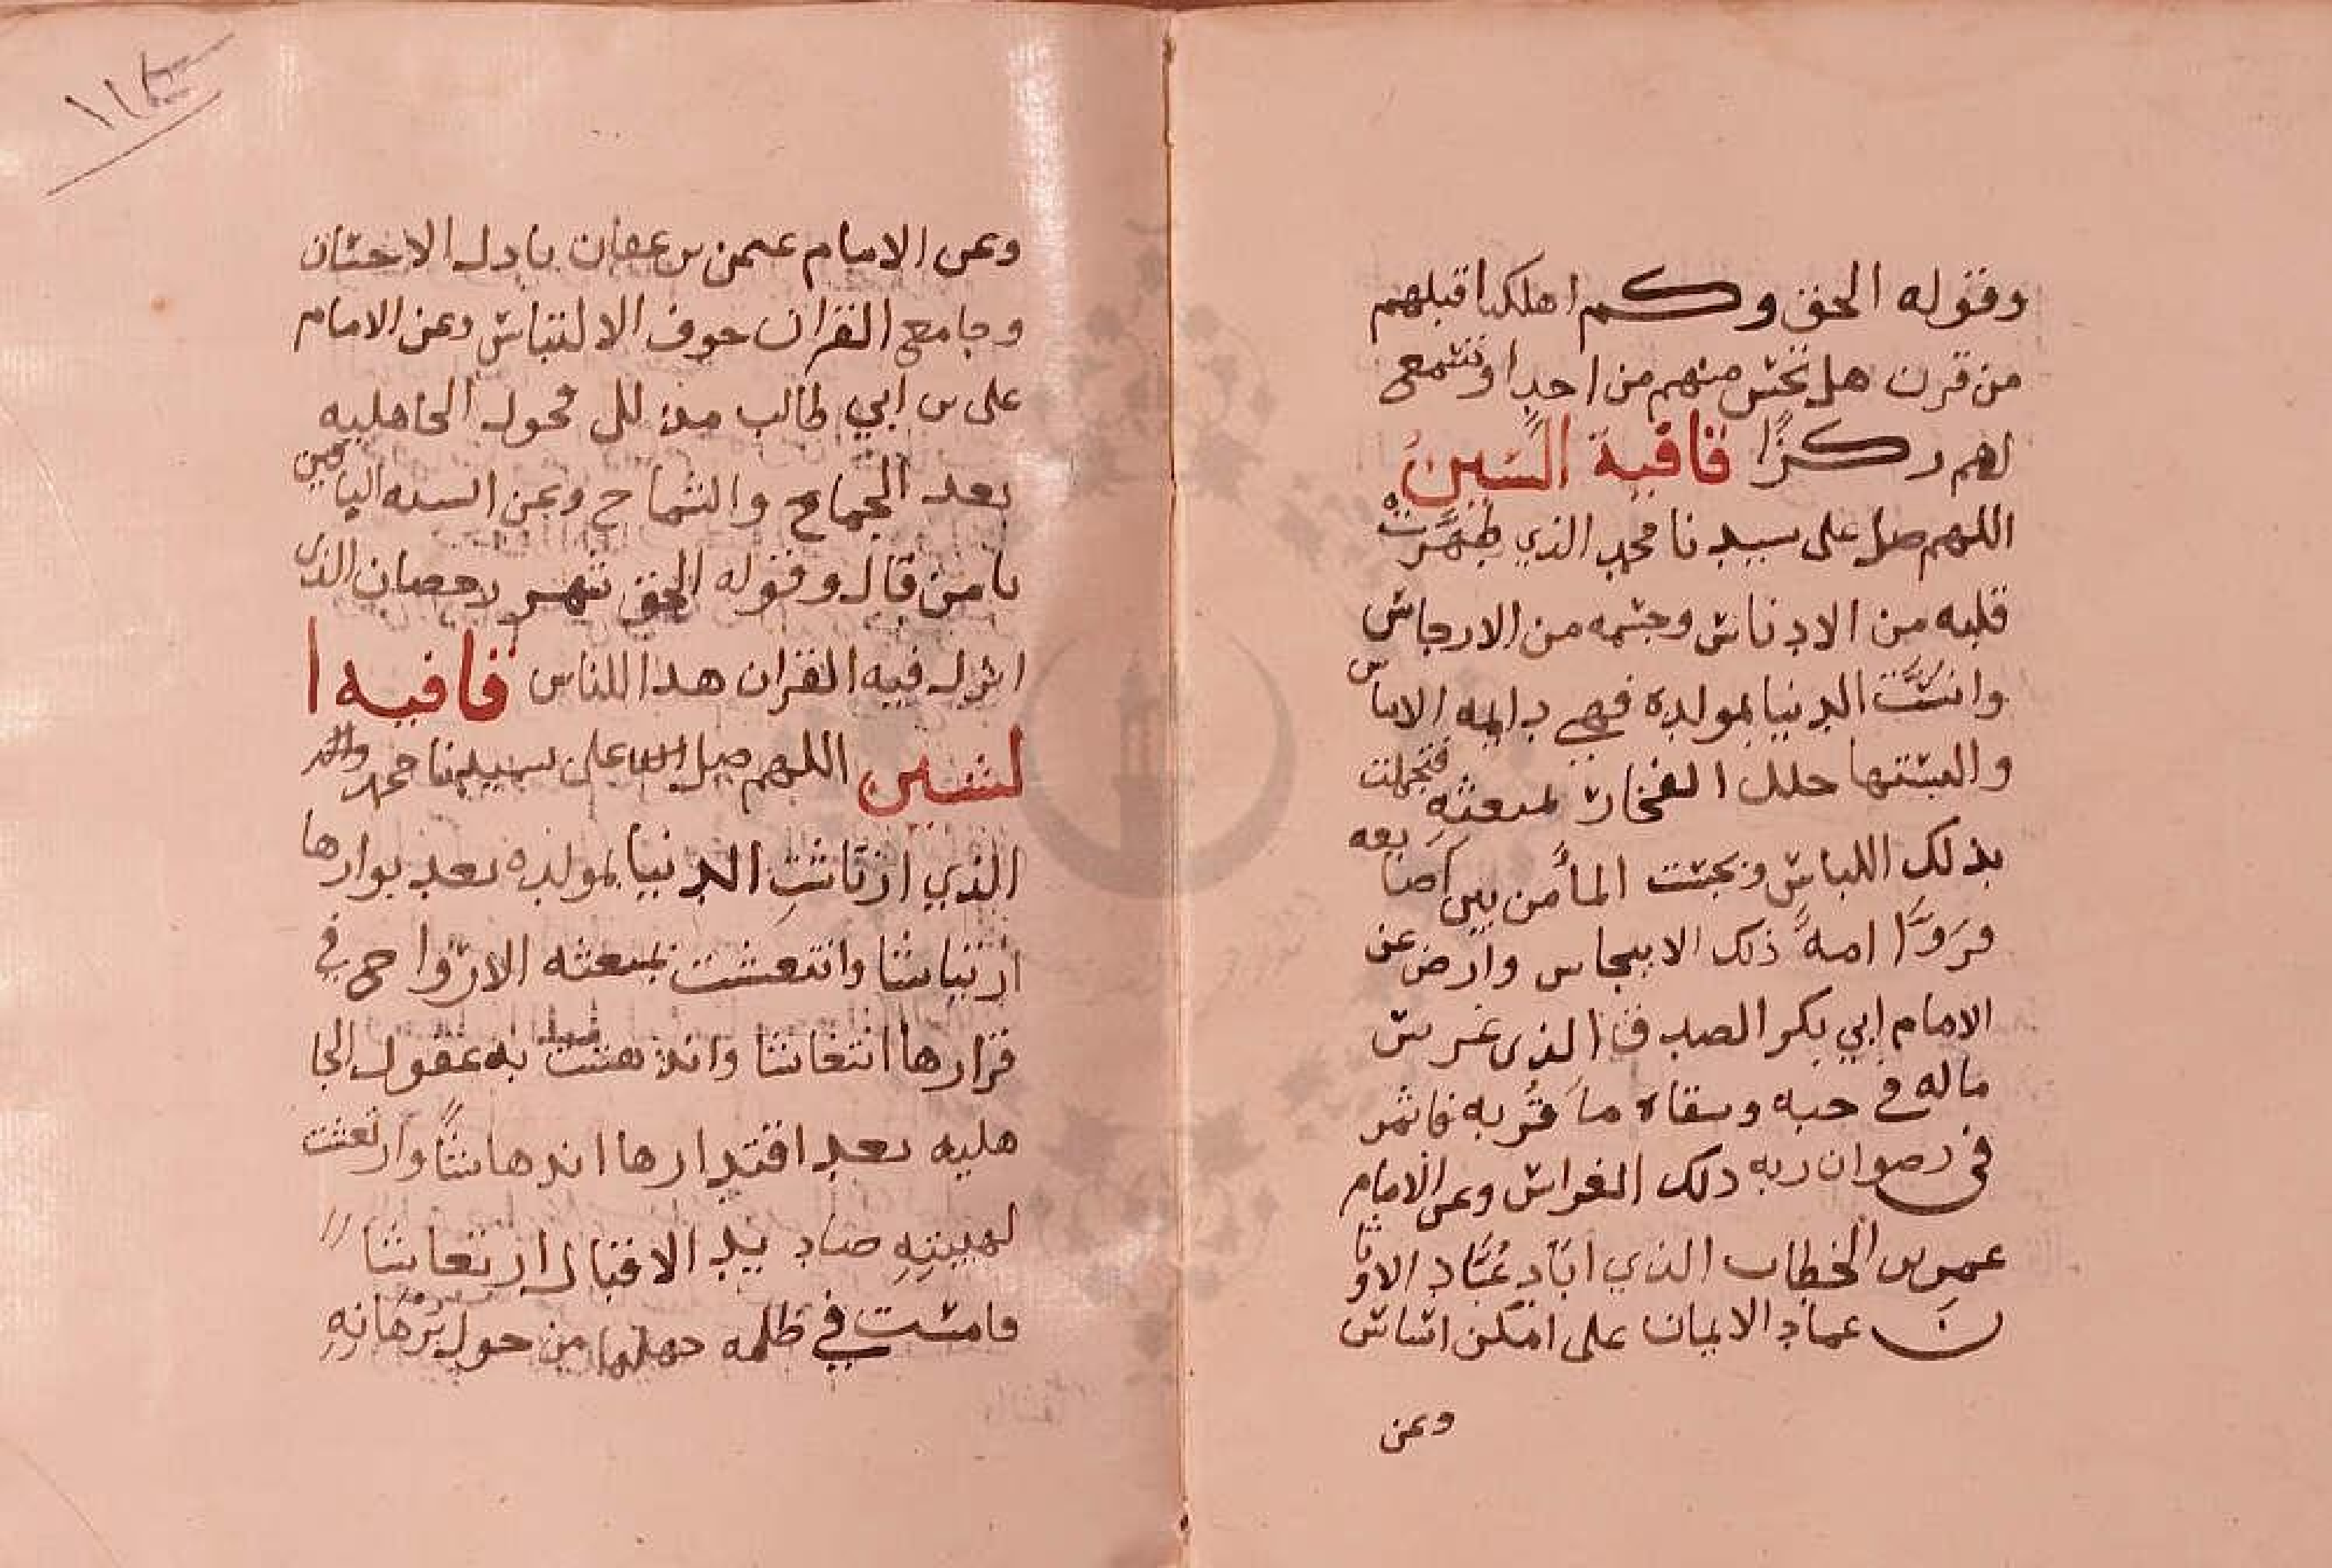 وقوله الحق وكم اهلكنا قبلهم
من قرن هل تحس منهم من احد او تسمع
لهم ركزا قافية السين
اللهم صل على سيدنا محمد الذي طهرت
قلبه من الادناس وجسمه من الارجاس
وانست الدنيا بمولده فهي دايمه الايناس
والبستها حلل الفخار بمبعثه فتجملت
بذلك اللباس وبجست الماء من بين اصابعه
فروا امة ذلك الابجاس وارض عن
الامام ابي بكر الصديق الذى غرس
ماله في حبه وسقاه ماء قربه فاثمر
فى رضوان ربه ذلك الغراس وعن الامام
عمر بن الخطاب الذي اباد عباد الاوثا
ن عماد الايمان على امكن اساس
وعن
١١٣
وعن الامام عثمن بن عفان باذل الاحسان
وجامع القران خوف الالتباس وعن الامام
على بن ابي طالب مذلل فحول الجاهليه
بعد الجماح والشماح وعن الستة الباقين
يا من قال وقوله الحق شهر رمضان الذى
انزل فيه القران هدا للناس قافيه ا
لشين اللهم صل على سيدنا محمد
الذي ارتاشت الدنيا بمولده بعد بوارها
ارتياشا وانتعشت بمبعثه الارواح في
قرارها انتعاشا واندهشت به عقول الجا
هليه بعد اقتدارها اندهاشا وارتعشت
لهيبته صناديد الاقيال ارتعاشا
ومشت في ظلمه جهلها من حول برهانه